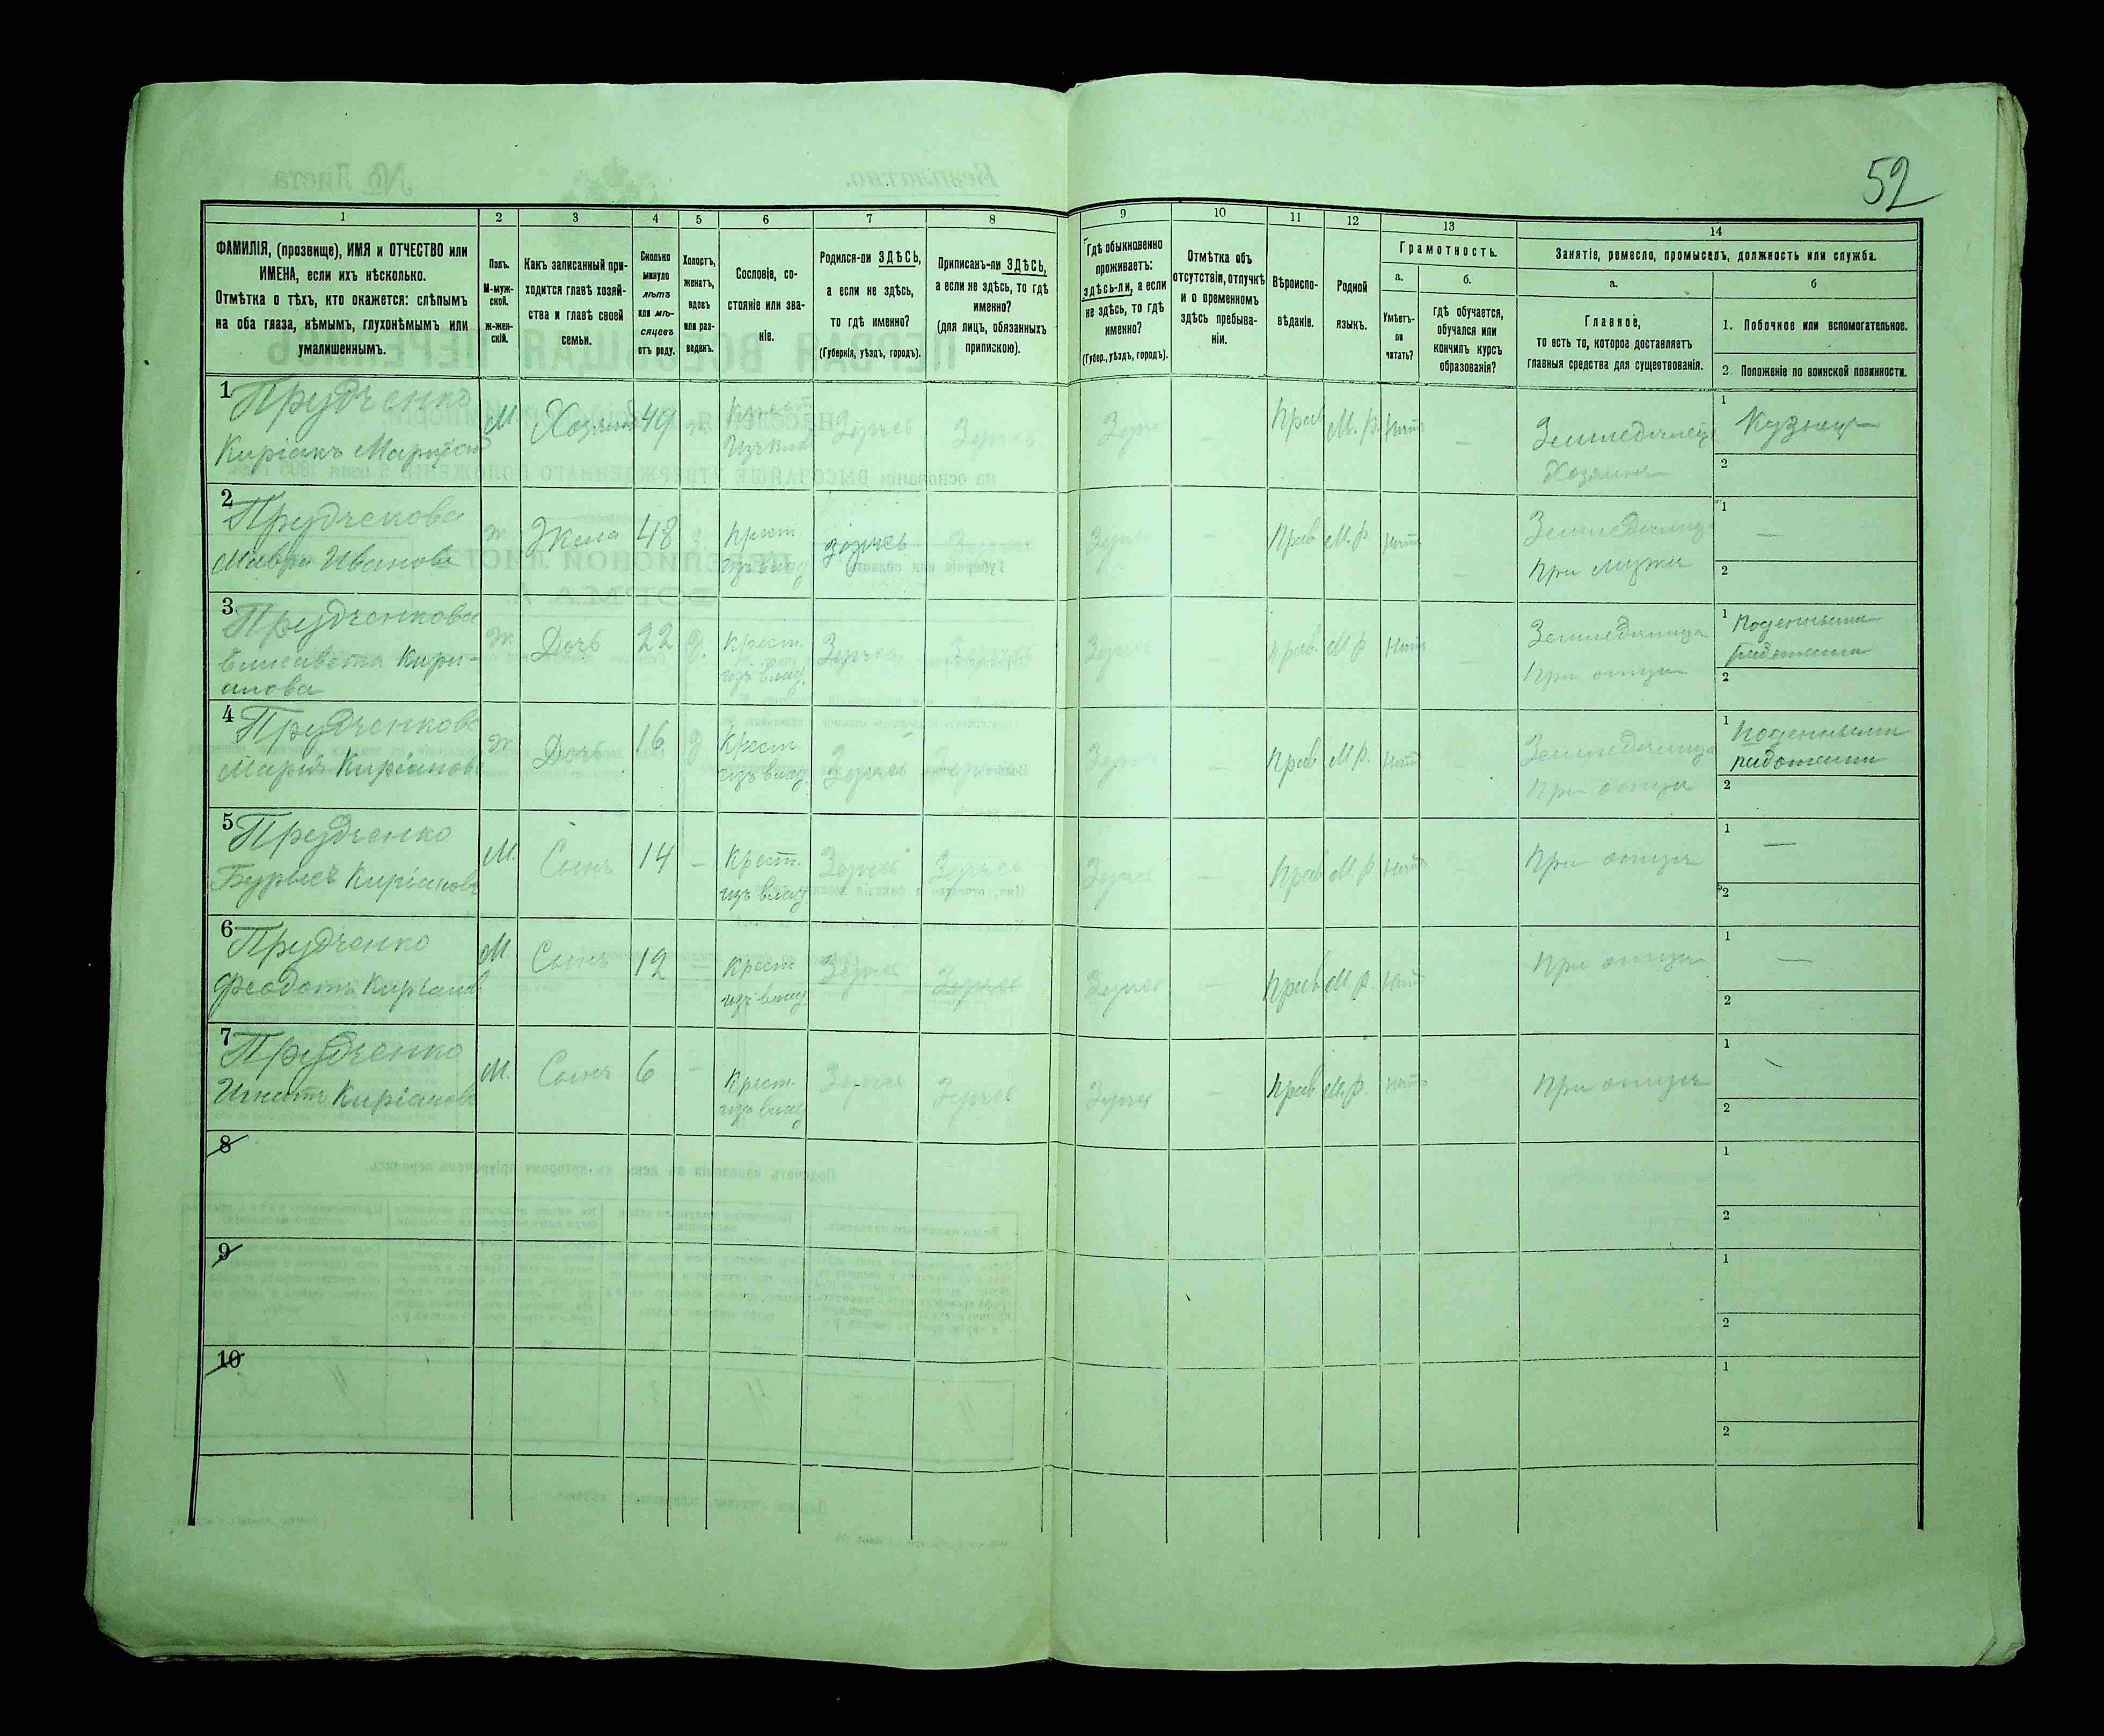 52
1 2 3 4 5 6 7 8 9 10 11 12 13 14
ФАМИЛІЯ, (прозвище), ИМЯ и ОТЧЕСТВО или
ИМЕНА, если ихъ нѣсколько.
Отмѣтка о тѣхъ, кто окажется: слѣпымъ
на оба глаза, нѣмымъ, глухонѣмымъ или
умалишеннымъ.
Полъ.
М-муж-
ской.
ж-жен-
скій.
Какъ записанный при-
ходится главѣ хозяй-
ства и главѣ своей
семьи.
Сколько
минуло
лѣтъ
или мѣ-
сяцевъ
отъ роду.
Холостъ,
женатъ,
вдовъ
или раз-
веденъ.
Сословіе, со-
стояніе или зва-
ніе.
Родился-ли ЗДѢСЬ,
а если не здѣсь,
то гдѣ именно?
(Губернія, уѣздъ, городъ).
Приписанъ-ли ЗДѢСЬ,
а если не здѣсь, то гдѣ
именно?
(для лицъ, обязанныхъ
припискою).
Гдѣ обыкновенно
проживаетъ:
здѣсь-ли, а если
не здѣсь, то гдѣ
именно?
(Губер., уѣздъ, городъ).
Отмѣтка объ
отсутствіи, отлучкѣ
и о временномъ
здѣсь пребыва-
ніи.
Вѣроиспо-
вѣданіе.
Родной
языкъ.
Грамотность.
а.
Умѣетъ-
ли
читать?
б.
гдѣ обучается,
обучался или
кончилъ курсъ
образованія?
Занятія, ремесло, промыселъ, должность или служба.
а.
Главное,
то есть то, которое доставляетъ
главныя средства для существованія.
б
1. Побочное или вспомогательное.
2. Положеніе по воинской повинности.
1 Прудченко
Киріакъ
М. Хозяинъ 49
Крест.
Здѣсь Здѣсь Здѣсь — Прав М. р. Нѣтъ —
Земледѣлецъ
Хозяинъ
1 Кузнец
2
2 Прудченкова
Мавра Иванова
ж. Жена 48
Крест.
изъ влад.
Здѣсь Здѣсь — Прав М. р. Нѣтъ —
Земледѣлица
При мужѣ
1 —
2
3 Прудченкова
Елисавета Кири-
анова
ж. Дочь 22 д.
Крест.
изъ влад.
Здѣсь Здѣсь Здѣсь — Прав. М р Нѣтъ —
Земледѣлица
При отцѣ
1 Поденными
работами
2
4 Прудченкова
Марія Киріанова
ж. Дочь 16 д
Крест.
изъ влад.
Здѣсь Здѣсь Здѣсь — Прав М р. Нѣтъ —
Земледѣлица
При отцѣ
1 Поденными
работами
2
5 Прудченко
Киріановъ
М. Сынъ 14 —
Крест.
изъ влад
Здѣсь Здѣсь Здѣсь — Прав М. р. Нѣтъ
При отцѣ
1 —
2
6 Прудченко
Феодотъ Киріанов
М. Сынъ 12 —
Крест
изъ влад.
Здѣсь Здѣсь Здѣсь — Прав М р. Нѣтъ
При отцѣ
1 —
2
7 Прудченко
Игнатъ Киріановъ
М. Сынъ 6 —
Крест.
изъ влад
Здѣсь Здѣсь Здѣсь — Прав М. р. Нѣтъ
При отцѣ
1
2
8
1
2
9
1
2
10
1
2